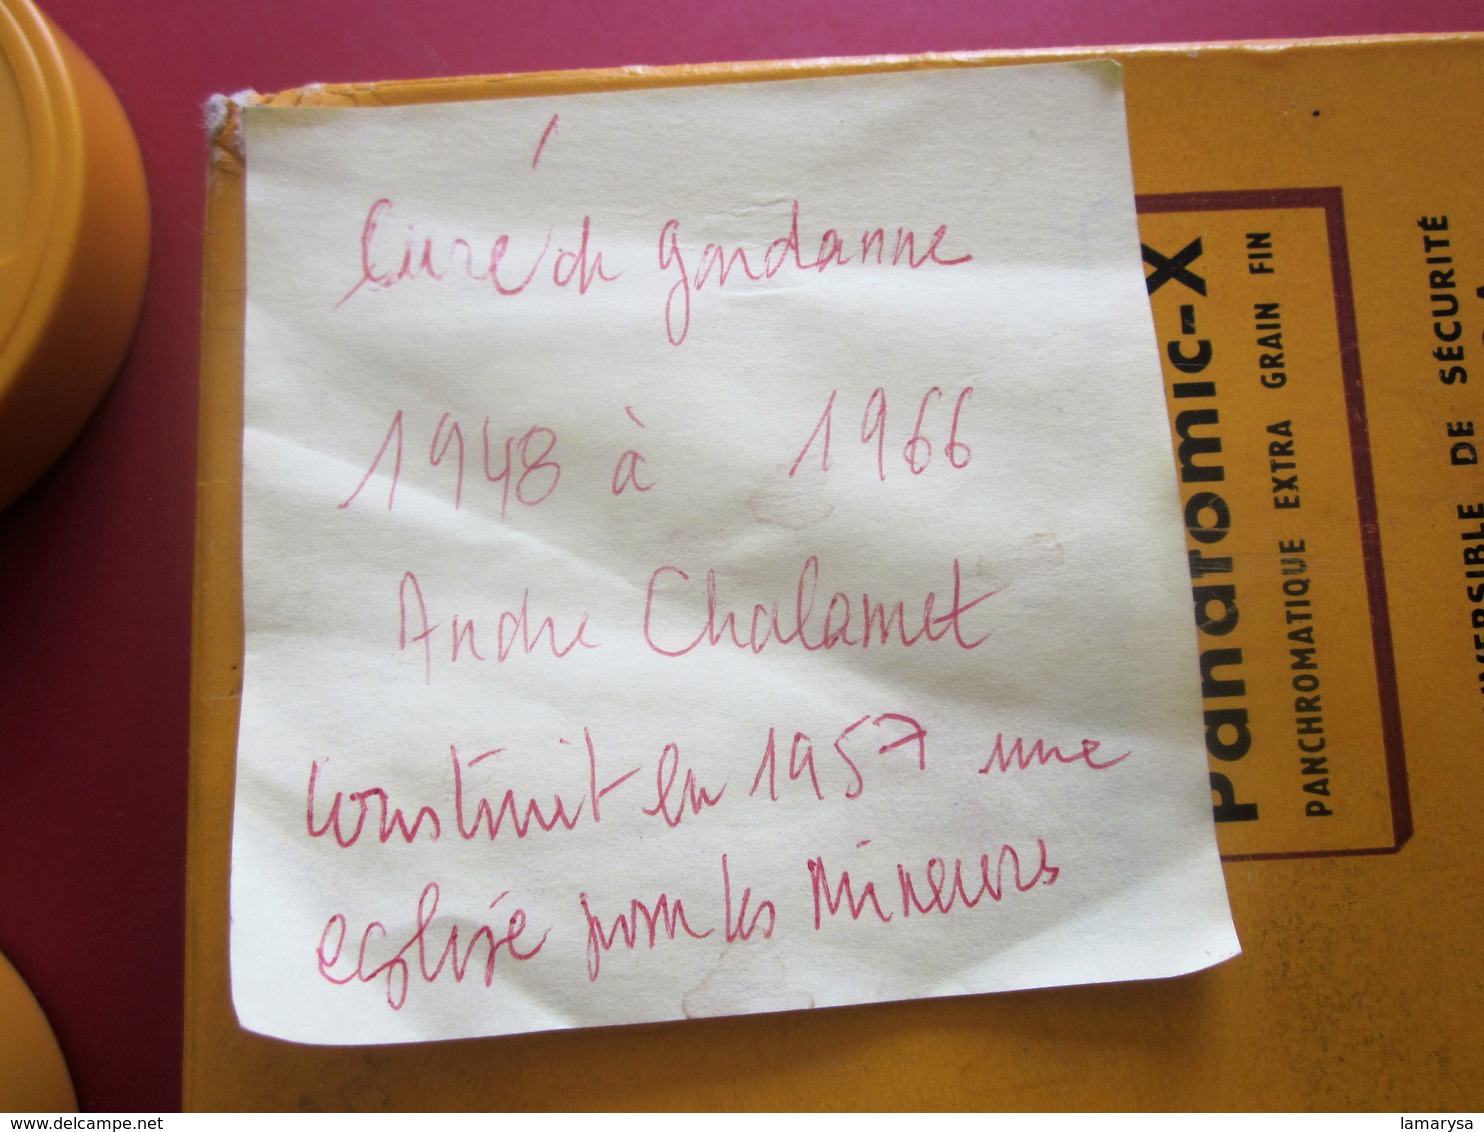 Curé de gardanne
1948 à 1966
Andre Chalamet
construit en 1957 une
eglise pour les mineurs
Panatomic-X
PANCHROMATIQUE EXTRA GRAIN FIN
DE SÉCURITÉ
www.delcampe.net
lamarysa